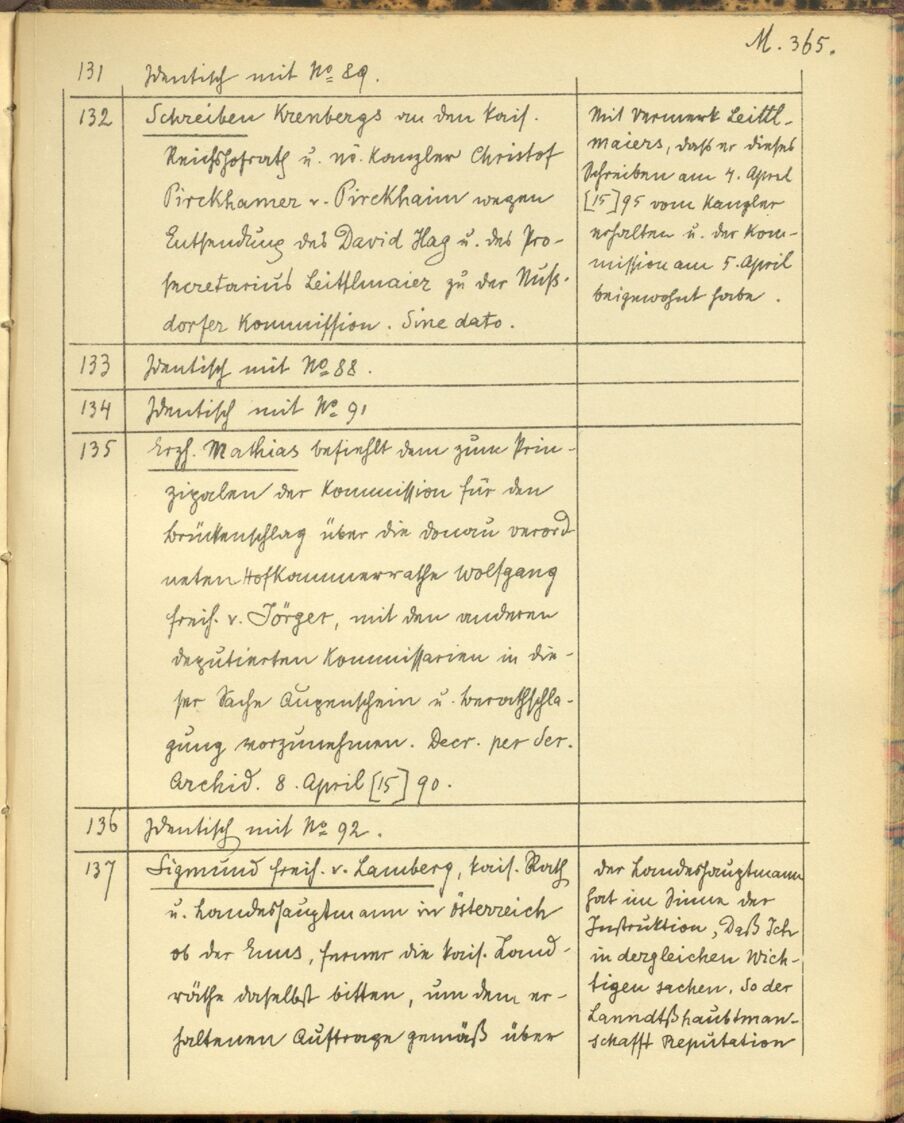 M. 365.
131 Identisch mit No 89.
132 Schreiben Krenbergs an den kais.
Reichshofrath u. nö. Kanzler Christof
Pirckhamer v. Pirckhaim wegen
Entsendung des David Hag u. des Pro-
secretarius Leittlmaier zu der Nuss-
dorfer Kommission. Sine dato.
Mit Vermerk Leittl-
maiers, daß er dieses
Schreiben am 4. April
[15]95 vom Kanzler
erhalten u. der Kom-
mission am 5. April
beigewohnt habe.
133 Identisch mit No 88.
134 Identisch mit No 91
135 Erzh. Mathias befiehlt dem zum Prin-
zipalen der Kommission für den
Brückenschlag über die Donau verord
neten Hofkammerrathe Wolfgang
Freih. v. Jörger, mit den anderen
deputierten Kommissarien in die-
ser Sache Augenschein u. Berathschla-
gung vorzunehmen. Decr. per Ser.
Archid. 8. April [15]90.
136 Identisch mit No 92.
137 Sigmund Freih. v. Lamberg, kais. Rath
u. Landeshauptmann in Österreich
ob der Enns, ferner die kais. Land-
räthe daselbst bitten, um dem er-
haltenen Auftrage gemäß über
Der Landeshauptmann
hat im Sinne der
Instruktion, „Daß Ich
in dergleichen Wich-
tigen sachen, So der
Lanndtßhaubtman-
schafft Reputation